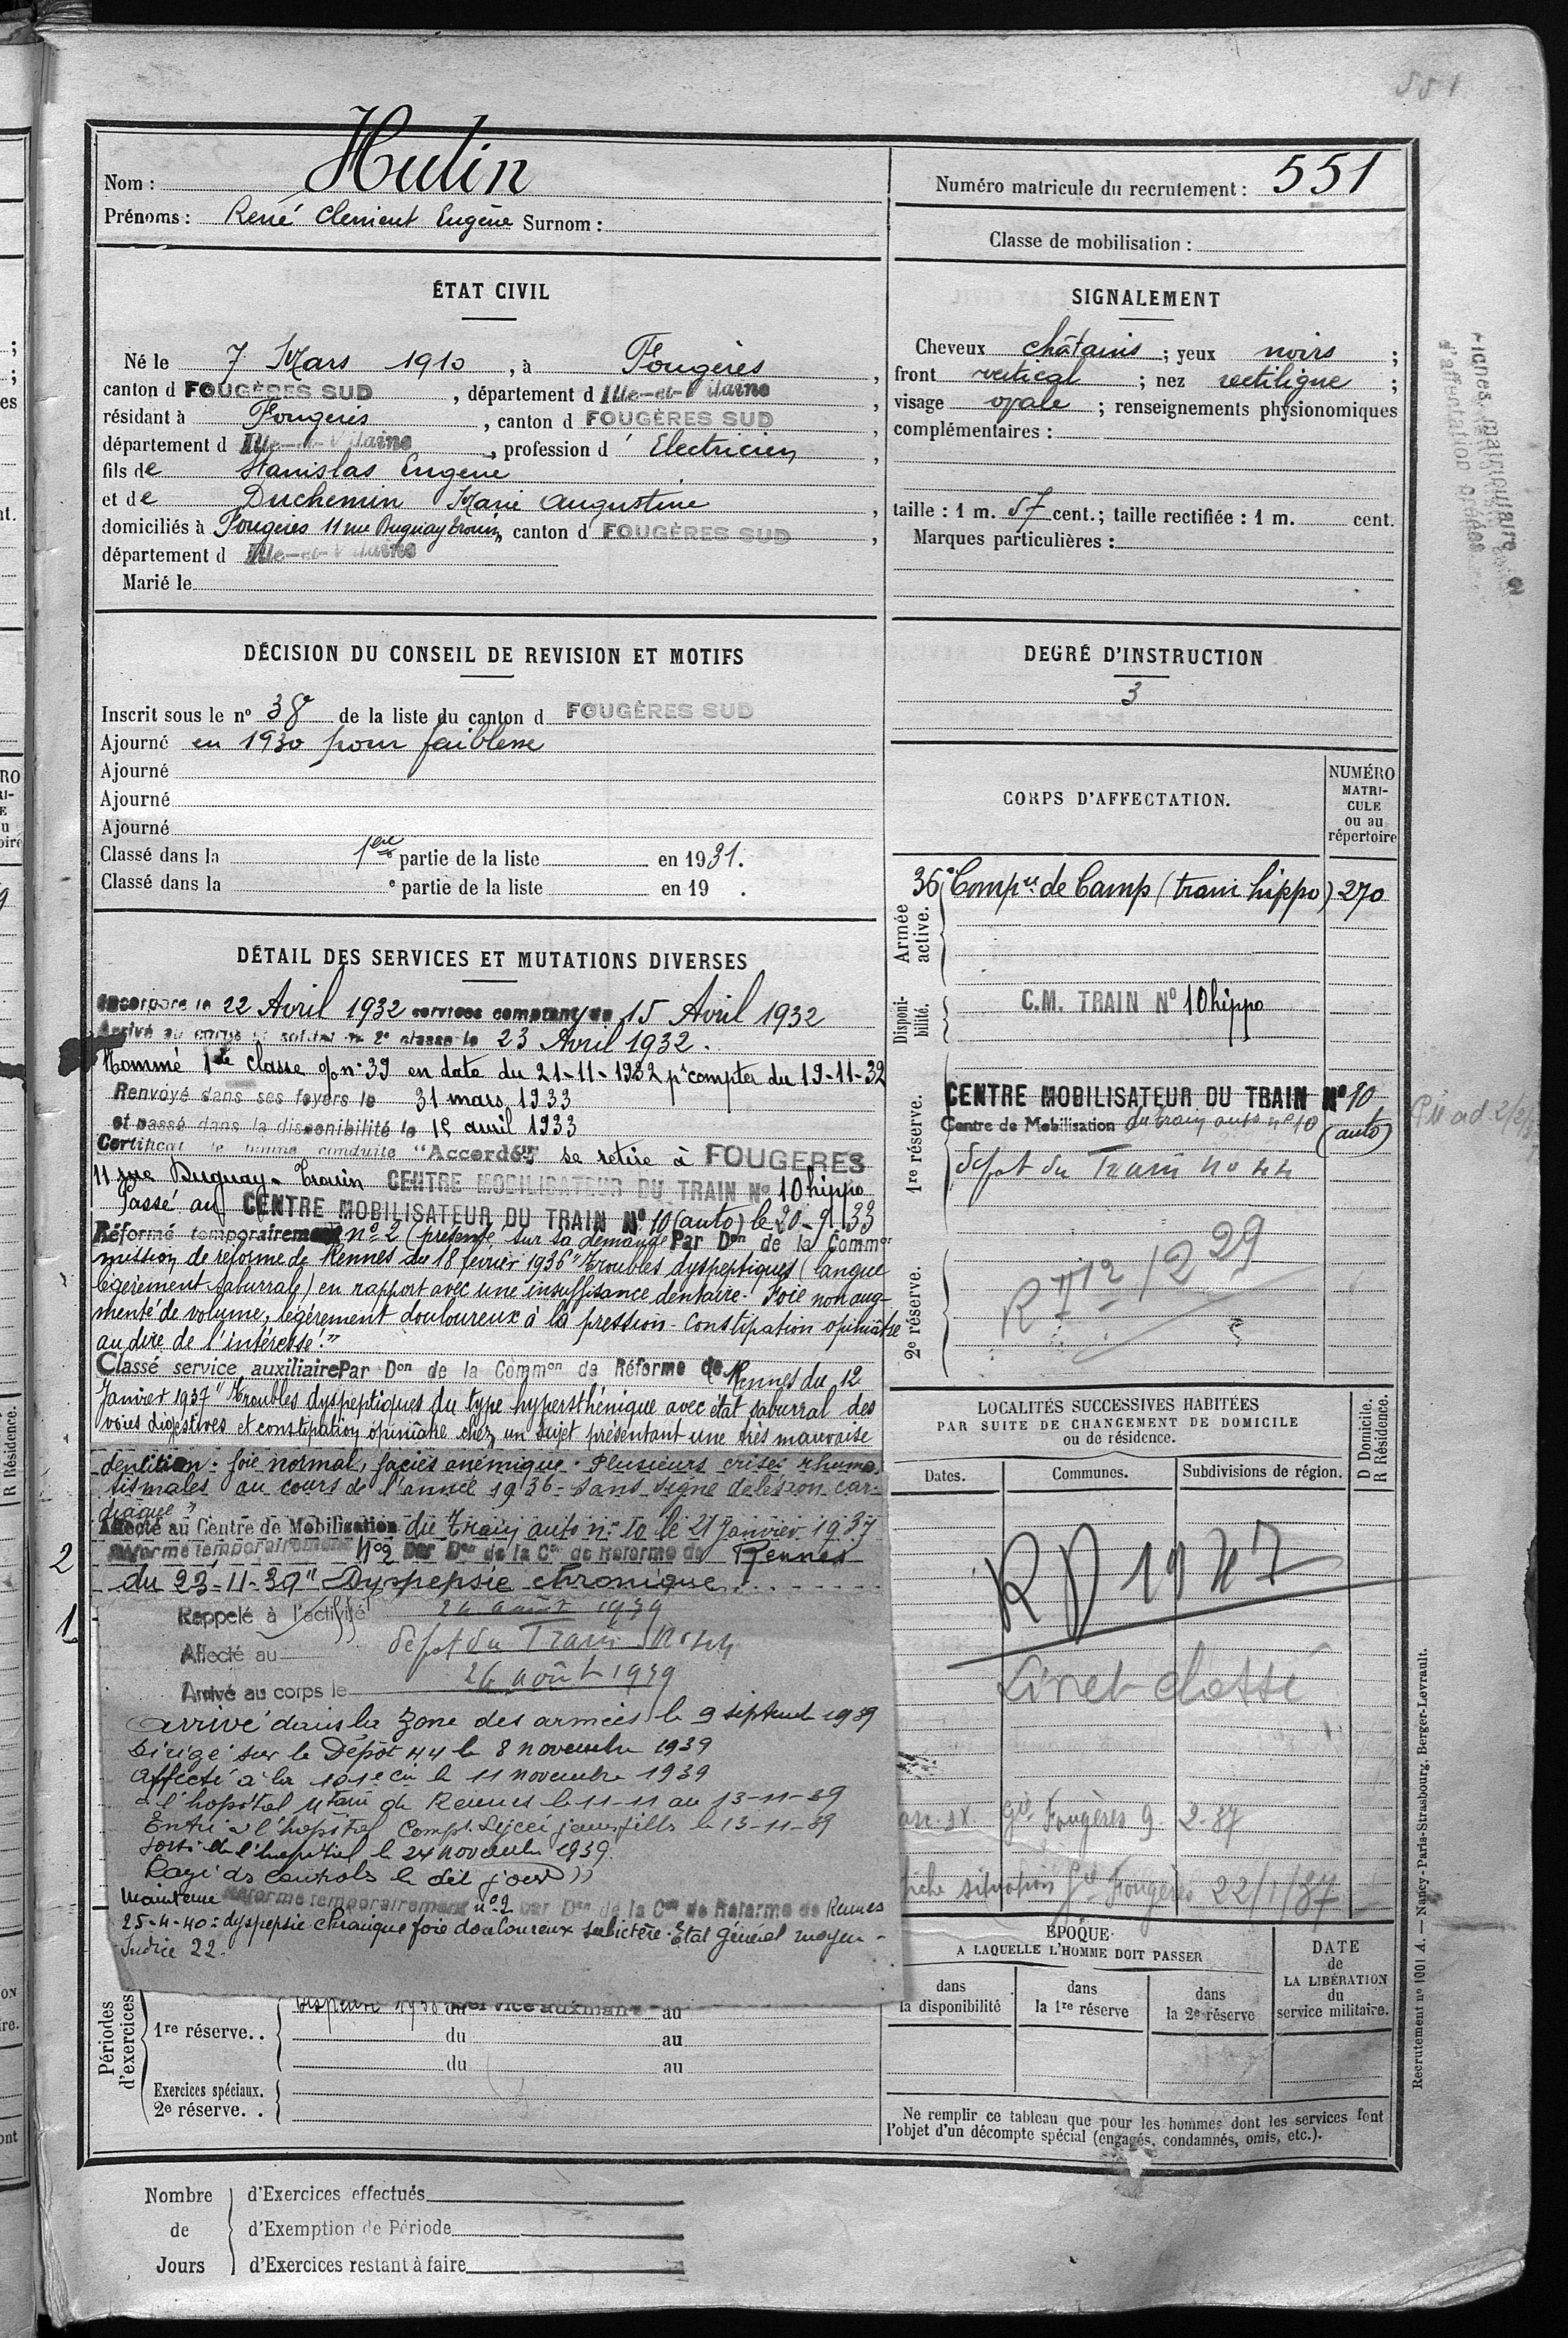 551
Nom : Hulin
Prénoms : René Clément Eugène Surnom :
Numéro matricule du recrutement : 551
Classe de mobilisation :
ÉTAT CIVIL
Né le 7 Mars 1910, à Fougères,
canton d FOUGÈRES SUD, département d Ille-et-Vilaine,
résidant à Fougères, canton d FOUGÈRES SUD,
département d Ille-et-Vilaine, profession d' Electricien,
fils de Stanislas Eugène
et de Duchemin Marie Augustine,
domiciliés à Fougères 11 rue Duguay Trouin, canton d FOUGÈRES SUD,
département d Ille-et-Vilaine
Marié le
SIGNALEMENT
Cheveux châtains ; yeux noirs ;
front vertical ; nez rectiligne ;
visage ovale ; renseignements physionomiques
complémentaires :
taille : 1 m. 57 cent. ; taille rectifiée : 1 m. cent.
Marques particulières :
DÉCISION DU CONSEIL DE REVISION ET MOTIFS
Inscrit sous le nº 38 de la liste du canton d FOUGÈRES SUD
Ajourné en 1930 pour faiblesse
Ajourné
Ajourné
Ajourné
Classé dans la 1ère partie de la liste en 1931.
Classé dans la e partie de la liste en 19 .
DEGRÉ D'INSTRUCTION
3
CORPS D'AFFECTATION.
NUMÉRO
MATRI-
CULE
ou au
répertoire
Armée active.
36e Compie de Camp (train hippo) 270
Disponi-
bilité.
C.M. TRAIN Nº 10 hippo
1re réserve.
CENTRE MOBILISATEUR DU TRAIN Nº 10
Centre de Mobilisation du train auto nº 10 (auto)
Dépôt du Train No 44
2e réserve.
DÉTAIL DES SERVICES ET MUTATIONS DIVERSES
Incorporé le 22 Avril 1932 services comptant du 15 Avril 1932
Arrivé au corps et soldat de 2e classe le 23 Avril 1932.
Nommé 1ère classe o/ nº 39 en date du 21-11-1932 pr compter du 19-11-32
Renvoyé dans ses foyers le 31 mars 1933
et passé dans la disponibilité le 15 avril 1933
Certificat de bonne conduite "Accordé" se retire à FOUGERES
11 rue Duguay-Trouin CENTRE MOBILISATEUR DU TRAIN No 10 hippo
Passé au CENTRE MOBILISATEUR DU TRAIN Nº 10 (auto) le 20-9-33
Réformé temporairement nº 2 (présenté sur sa demande Par Don de la Common
mission de réforme de Rennes du 18 février 1936 "Troubles dyspeptiques (langue
légèrement saburrale) en rapport avec une insuffisance dentaire. Foie non aug-
menté de volume, légèrement douloureux à la pression - Constipation opiniâtre
au dire de l'intéressé."
Classé service auxiliaire Par Don de la Common de Réforme de Rennes du 12
Janvier 1937 "Troubles dyspeptiques du type hypersthénique avec état saburral des
voies digestives et constipation opiniâtre chez un sujet présentant une très mauvaise
dentition. foie normal, faciès anémique. Plusieurs crises rhuma-
tismales au cours de l'année 1936 - sans signe de lésion car-
diaque"
Affecté au Centre de Mobilisation du Train auto nº 10 le 21 Janvier 1937
2 Réformé temporairement Nº2 par Don de la Con de Réforme de Rennes
du 23-11-39 "Dyspepsie chronique
1 Rappelé à l'activité 24 août 1939
Affecté au dépôt du Train Nº 44
Arrivé au corps le 26 août 1939
Arrivé dans la Zone des armées le 9 septembre 1939
Dirigé sur le Dépôt 44 le 8 novembre 1939
Affecté à la 101e Cie le 11 novembre 1939
à l'hôpital Mtaire de Rennes le 11-11 au 13-11-39
Entré à l'hôpital Compt Lycée jeunes filles le 13-11-39
sorti de l'hôpital le 24 novembre 1939.
Rayé des contrôles le dit jour
Maintenu Réformé temporairement nº 2 par Don de la Con de Réforme de Rennes
25-4-40 : dyspepsie chronique foie douloureux subictère. Etat général moyen -
Indice 22.
LOCALITÉS SUCCESSIVES HABITÉES
PAR SUITE DE CHANGEMENT DE DOMICILE
ou de résidence.
D Domicile.
R Résidence.
Dates.
Communes.
Subdivisions de région.
RD 1947
Livret classé
Gie Fougères 9-2-37
fiche situation Gie Fougères 22/1/37
ÉPOQUE
A LAQUELLE L'HOMME DOIT PASSER
DATE
de
LA LIBÉRATION
du
service militaire.
dans
la disponibilité
dans
la 1re réserve
dans
la 2e réserve
Périodes
d'exercices
du service auxiliaire au
1re réserve. . du au
du au
Exercices spéciaux.
2e réserve. .
Ne remplir ce tableau que pour les hommes dont les services font
l'objet d'un décompte spécial (engagés, condamnés, omis, etc.).
Nombre
de
Jours
d'Exercices effectués
d'Exemption de Période
d'Exercices restant à faire
Recrutement nº 1001 A. — Nancy-Paris-Strasbourg, Berger-Levrault.